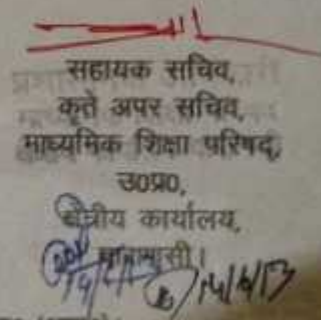 सहायक सचिव,
कृते अपर सचिव,
माध्यमिक शिक्षा परिषद्,
उ०प्र०,
क्षेत्रीय कार्यालय,
वाराणसी।